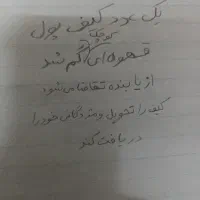 یک عدد کیف پول
کوچک
قهوه‌ای گم شد
از یابنده تقاضا می‌شود
کیف را تحویل و مژدگانی خود را
دریافت کند